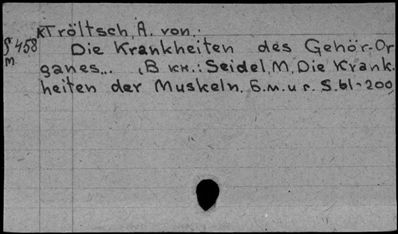 кTröltsch, A. von.:
§ 458 Die Krankheiten des Gehör-Or
m ganes... (В кн.: Seidel, M. Die Krank.
heiten der Muskeln. Б.м.и г. S. 61-200